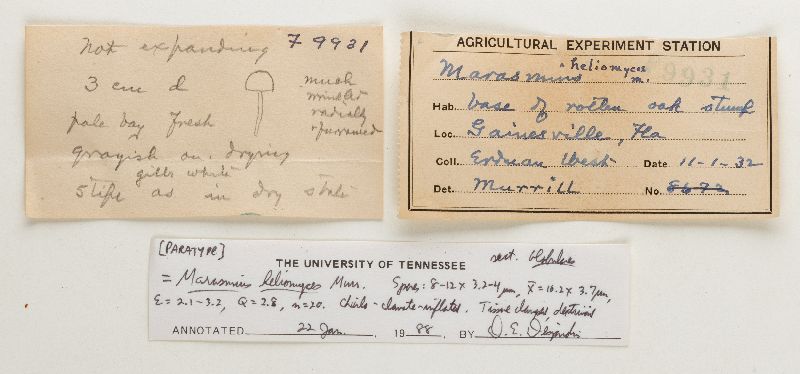 not expanding F 9931
3 cm d
much
wrinkled
radially
& furrowed
pale bay fresh
grayish on drying
gills white
Stipe as in dry state
AGRICULTURAL EXPERIMENT STATION
9931
^ heliomyces
Marasmius m.
Hab. base of rotten oak stump
Loc. Gainesville, Fla
Coll. Erdman West Date 11-1-32
Det. Murrill No. 8672
[PARATYPE]
THE UNIVERSITY OF TENNESSEE sect. Globulares
= Marasmius heliomyces Murr. Spores: 8-12 x 3.2-4 µm, x̄ = 10.2 x 3.7 µm,
E = 2.1-3.2, Q = 2.8, n=20. Cheilo - clavate-inflated. Tissue clamped, dextrinoid
ANNOTATED 22 Jan. 1988. BY D. E. Desjardin